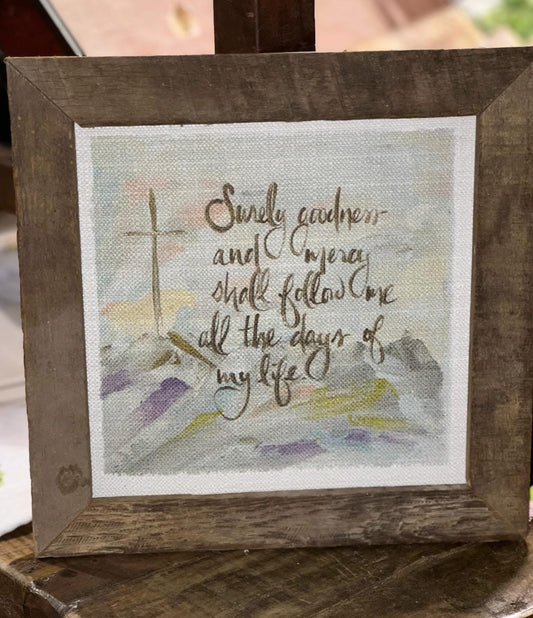 Surely goodness
and mercy
shall follow me
all the days of
my life.